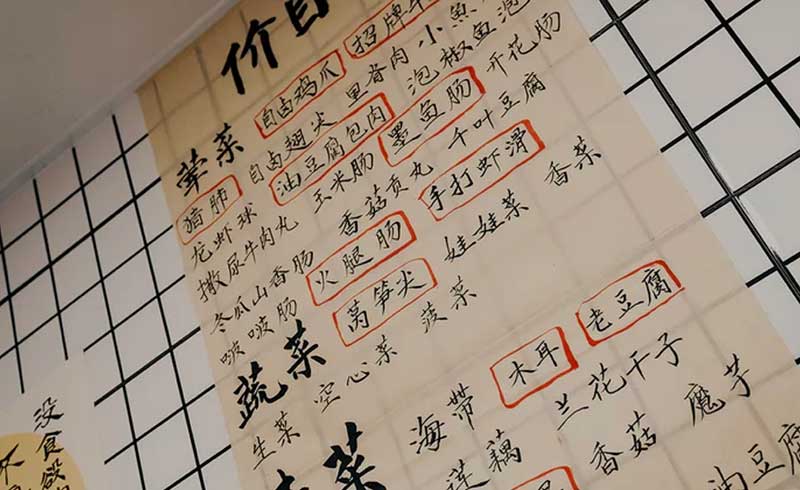 价目
荤菜 自卤鸡爪 招牌
猪肺 自卤翅尖 里脊肉 小魚
龙虾球 油豆腐包肉 泡椒鱼泡
撒尿牛肉丸 玉米肠 墨鱼肠 开花肠
冬瓜山香肠 香菇贡丸 千叶豆腐
啵啵肠 火腿肠 手打虾滑
蔬菜 莴笋尖 娃娃菜 香菜
生菜 空心菜 菠菜
菜 海带 木耳 老豆腐
莲藕 兰花干子
香菇 魔芋
油豆腐
没食欲